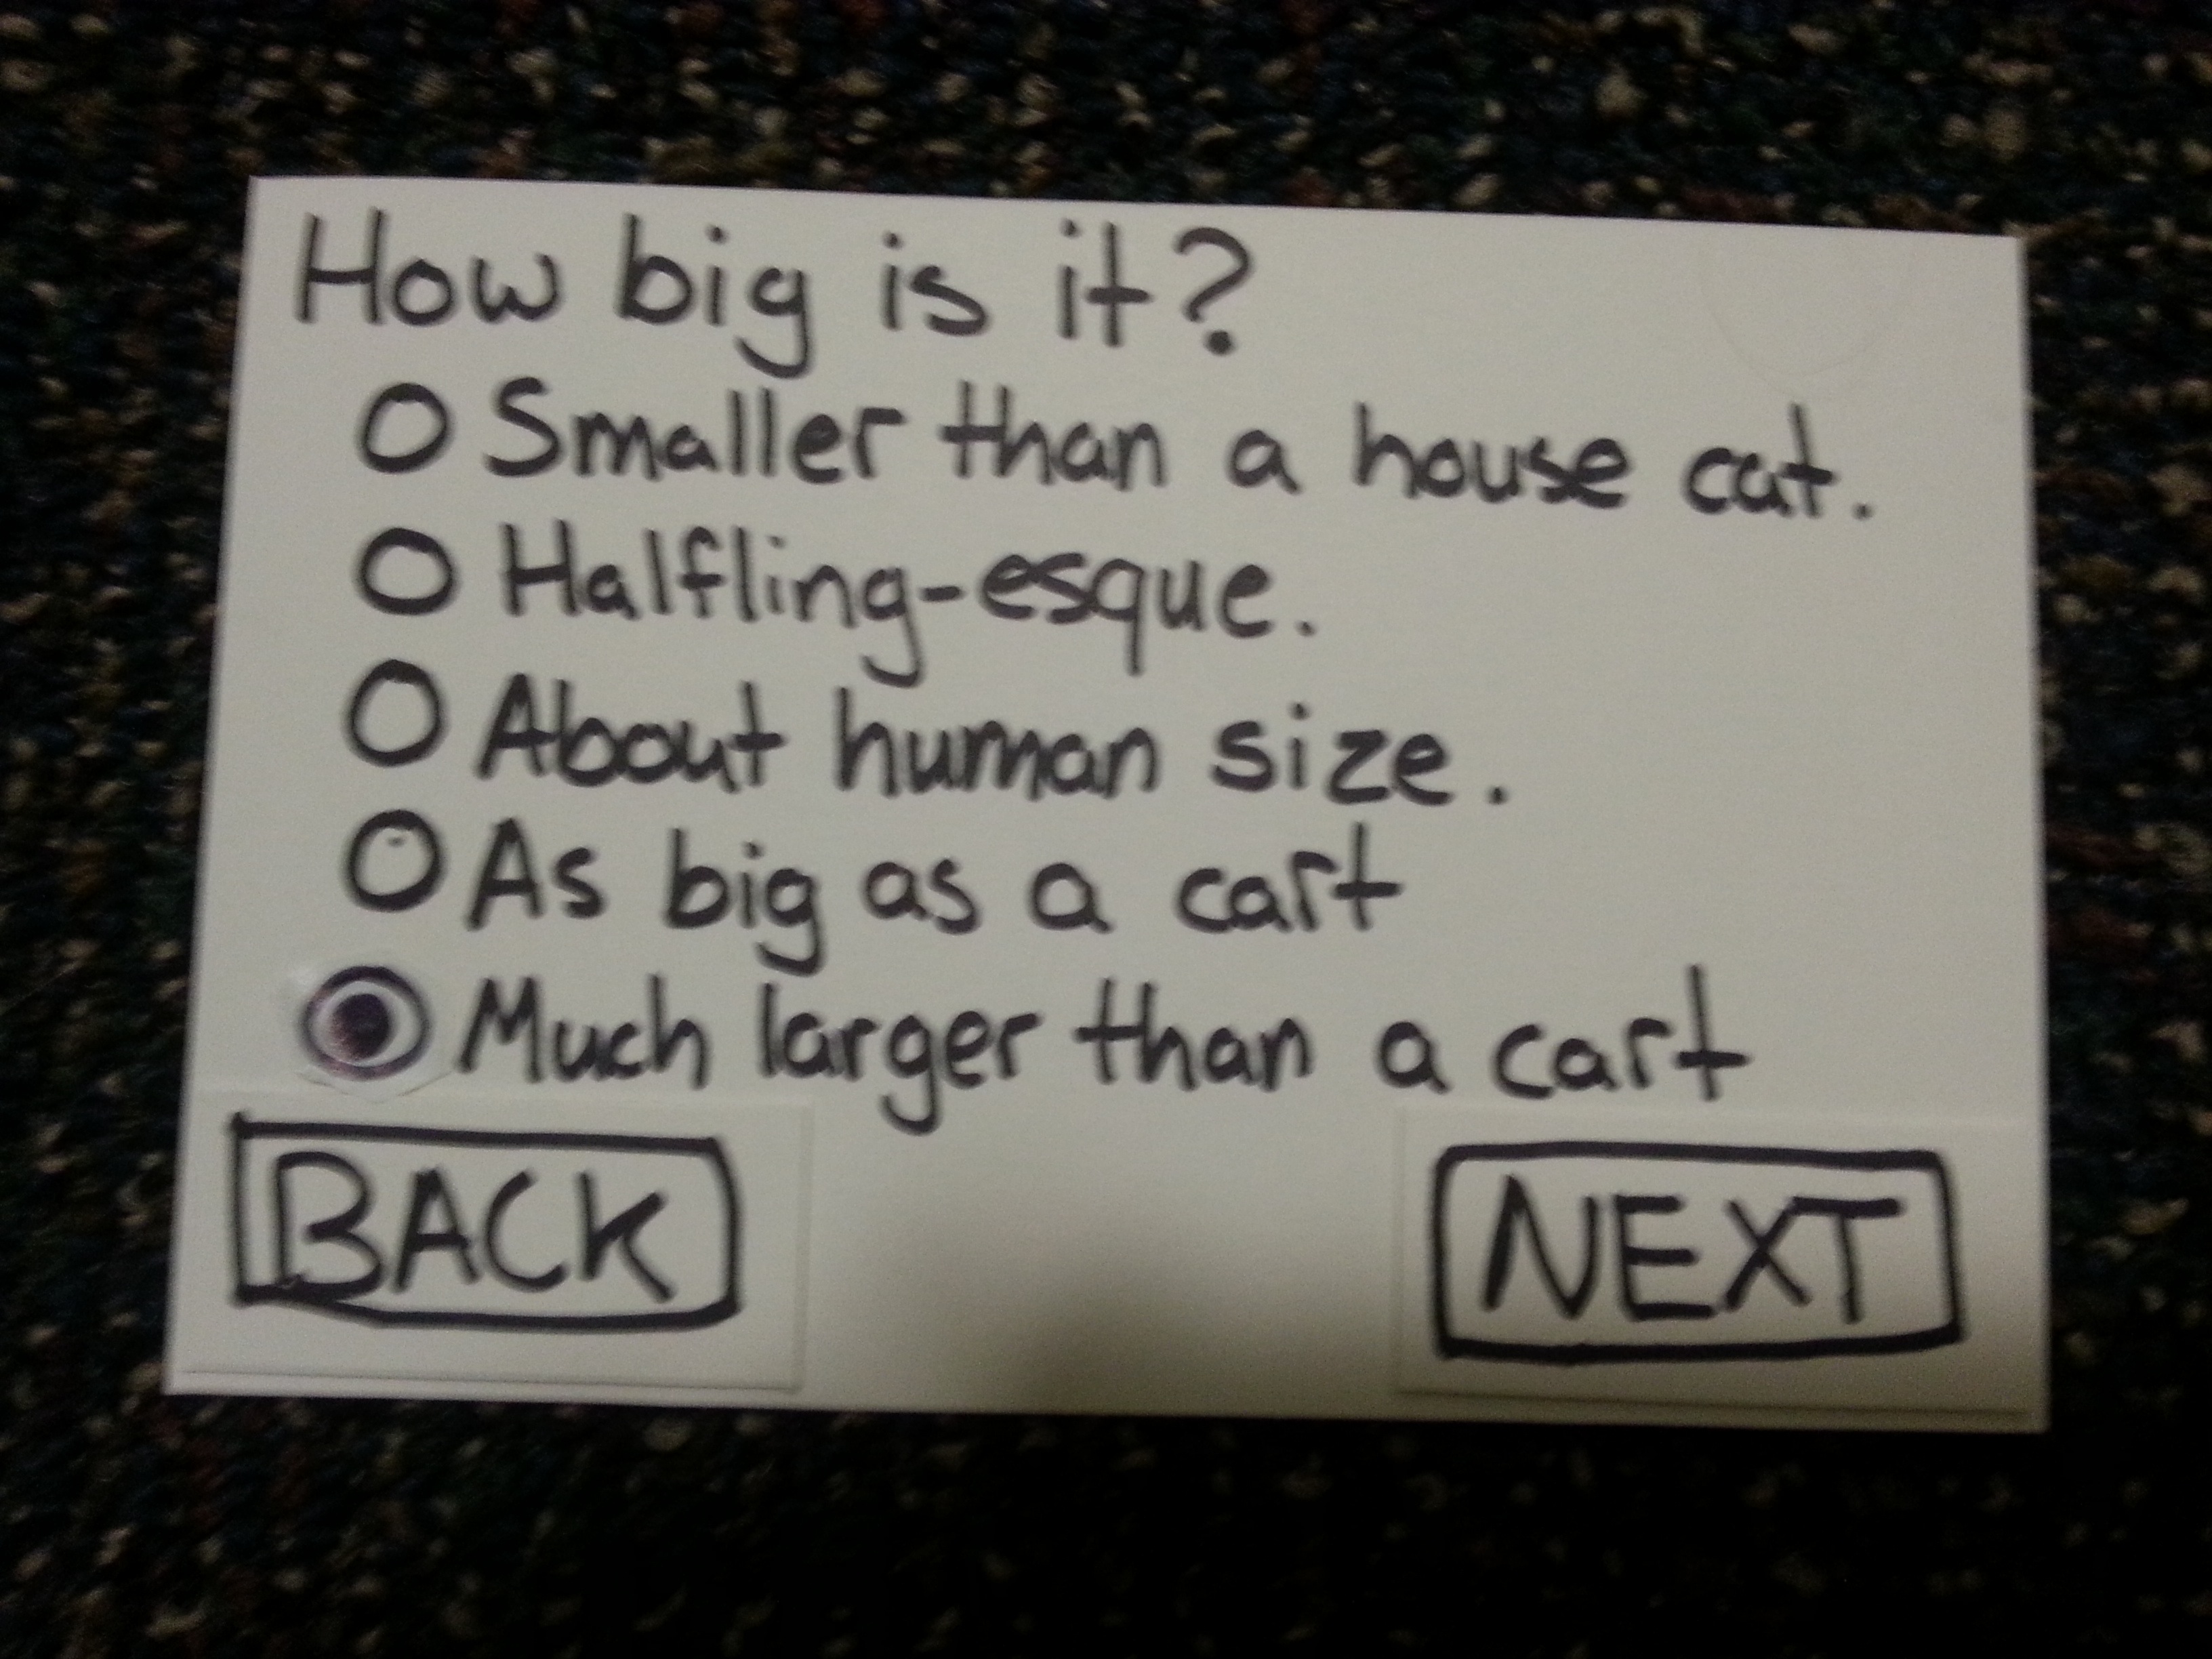 How big is it?
Smaller than a house cat.
Halfling-esque.
About human size.
As big as a cart
Much larger than a cart
BACK
NEXT